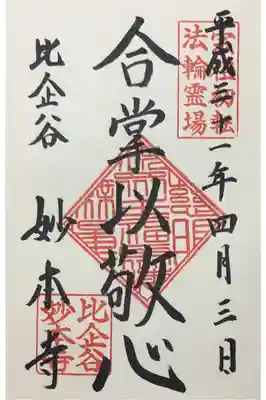 平成三十一年四月三日
合掌以敬心
比企谷 妙本寺
法輪霊場
比企谷
妙本寺